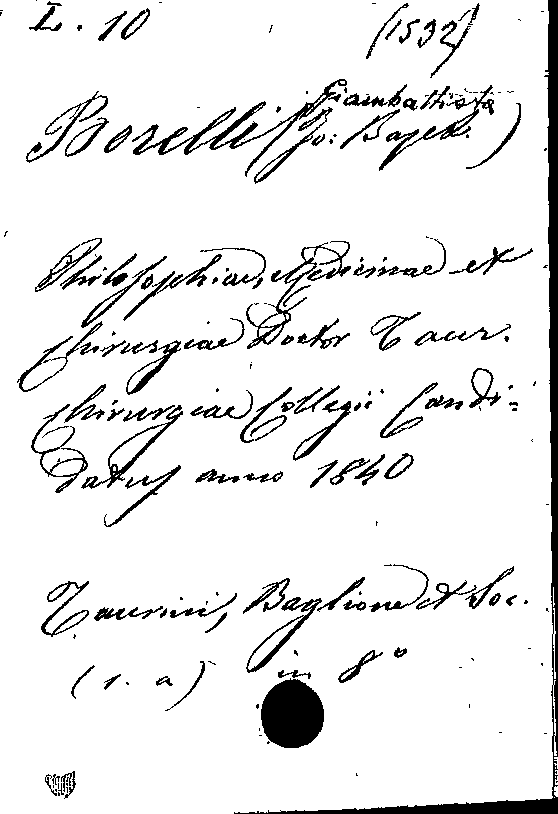 L. 10 (1532)
Giambattista
Borelli (Jo: Bapt.)
Philosophiae, Medicinae et
Chirurgiae Doctor Taur.
Chirurgiae Collegii Candi-
datus anno 1840
Taurini, Baglione et Soc.
(s. a) in 8°